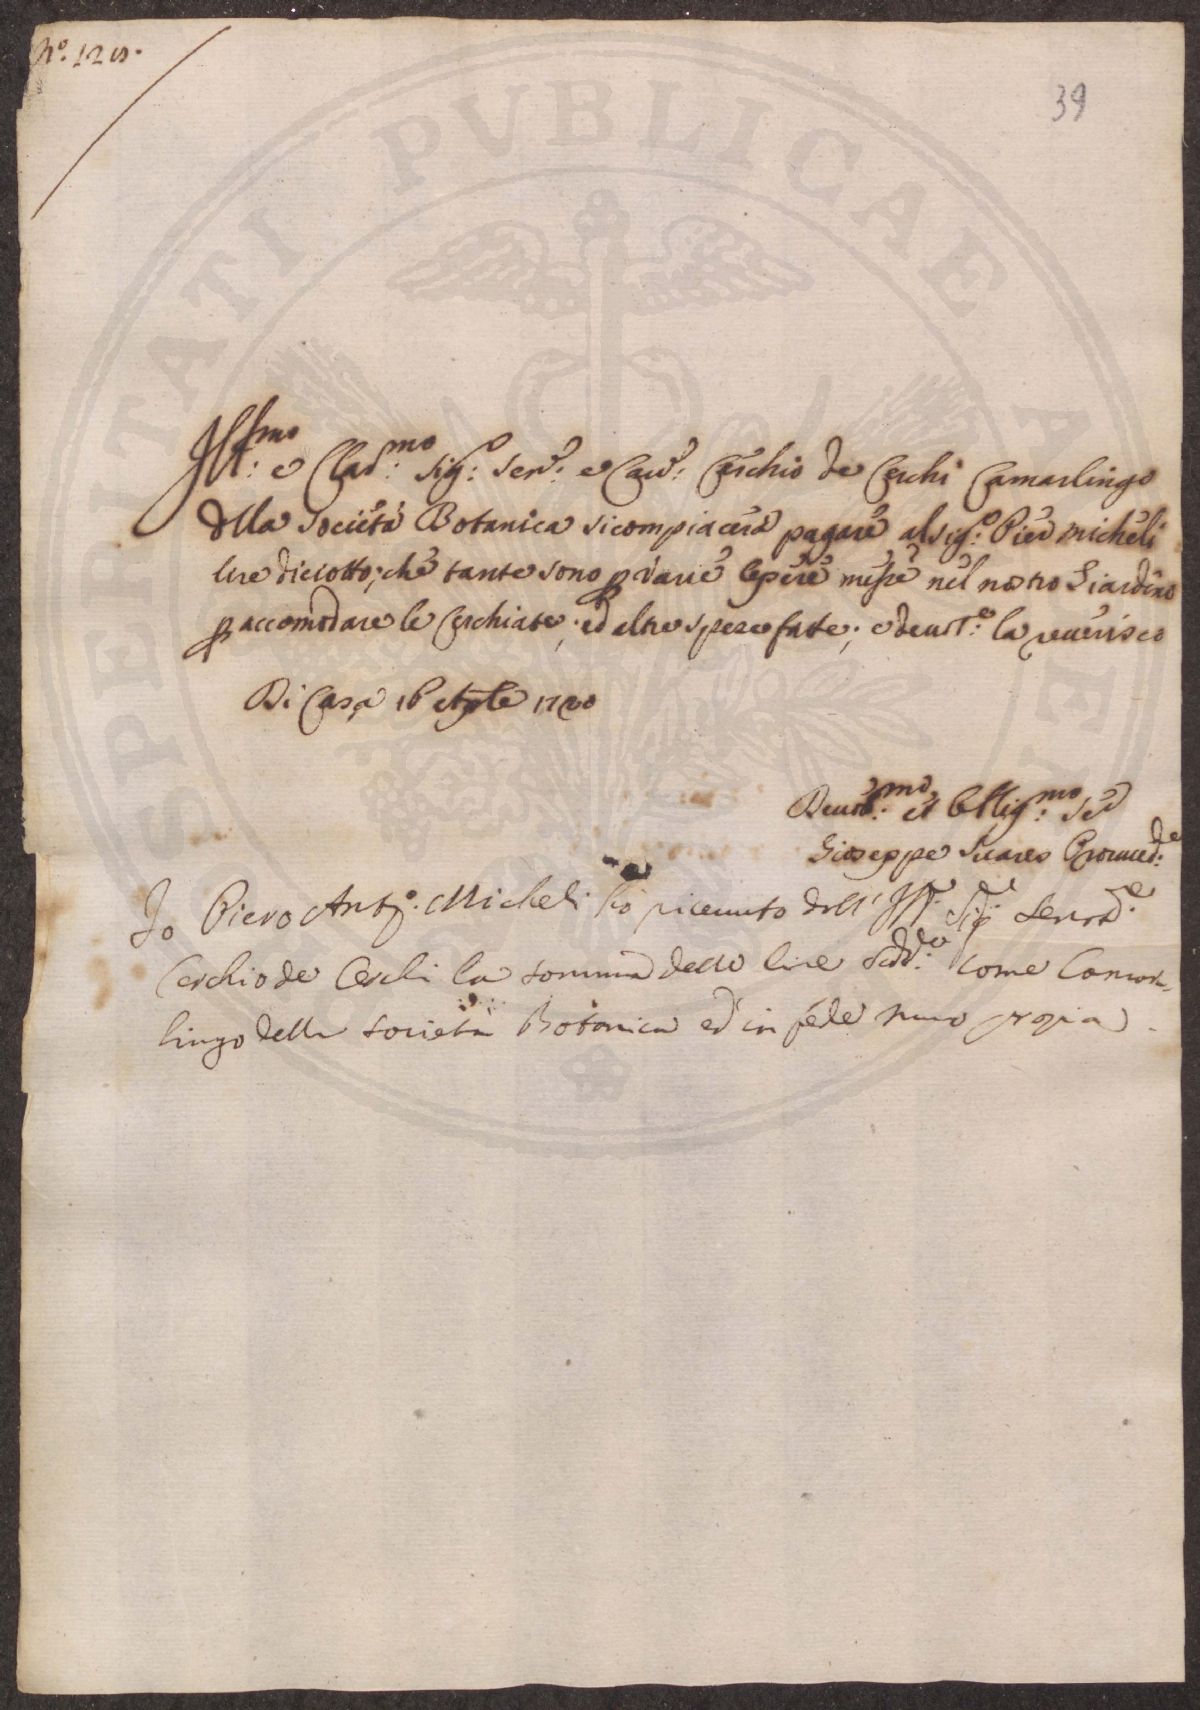 N.º 120.
39
PROSPERITATI PUBLICAE AUGENDAE
Ill:mo e Clar:mo Sig:re Sen:r e Cav:r Cerchio de Cerchi Camarlingo
della Società Botanica si compiacerà pagare al sig:re Pier Micheli
lire diciotto; che tante sono p varie opere messe nel nostro Giardino
p accomodare le Cerchiate; ed altre spese fatte; e devot:e la reverisco
Di Casa 16 Aple 1720
Devot:mo et Obblig:mo Ser
Giuseppe Suares Provved:re
Io Piero Ant.º Micheli ho riceuuto dall' Ill: Sig: Senat:re
Cerchio de Cerchi la somma delle lire Sudd:e come Camar-
lingo della Società Botanica ed in fede mano propia